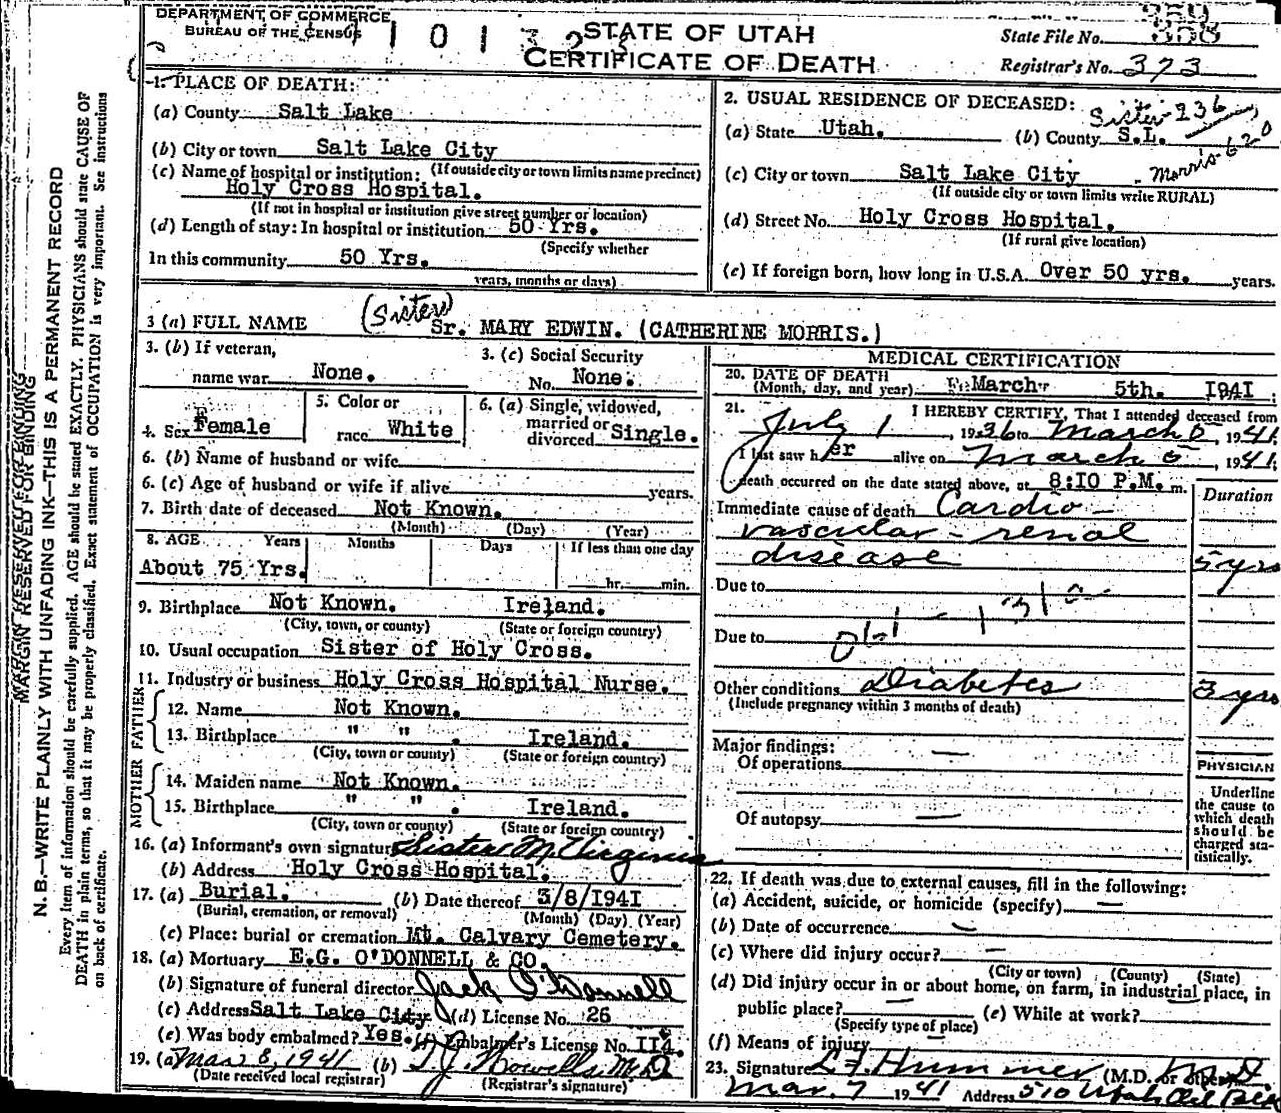 DEPARTMENT OF COMMERCE
BUREAU OF THE CENSUS
STATE OF UTAH
CERTIFICATE OF DEATH
State File No. 358
Registrar's No. 373
1. PLACE OF DEATH:
(a) County Salt Lake
(b) City or town Salt Lake City
(If outside city or town limits name precinct)
(c) Name of hospital or institution:
Holy Cross Hospital.
(If not in hospital or institution give street number or location)
(d) Length of stay: In hospital or institution 50 Yrs.
(Specify whether
In this community 50 Yrs.
years, months or days)
2. USUAL RESIDENCE OF DECEASED: Sister 236
(a) State Utah. (b) County S.L.
Morris-620
(c) City or town Salt Lake City
(If outside city or town limits write RURAL)
(d) Street No. Holy Cross Hospital.
(If rural give location)
(e) If foreign born, how long in U.S.A. Over 50 yrs. years.
3 (a) FULL NAME (Sister) Sr. MARY EDWIN. (CATHERINE MORRIS.)
3. (b) If veteran,
name war None.
3. (c) Social Security
No. None.
4. Sex Female
5. Color or
race White
6. (a) Single, widowed,
married or
divorced Single.
6. (b) Name of husband or wife
6. (c) Age of husband or wife if alive years.
7. Birth date of deceased Not Known.
(Month) (Day) (Year)
8. AGE Years Months Days If less than one day
About 75 Yrs. hr. min.
9. Birthplace Not Known. Ireland.
(City, town, or county) (State or foreign country)
10. Usual occupation Sister of Holy Cross.
11. Industry or business Holy Cross Hospital Nurse.
FATHER
12. Name Not Known.
13. Birthplace " " . Ireland.
(City, town or county) (State or foreign country)
MOTHER
14. Maiden name Not Known.
15. Birthplace " " . Ireland.
(City, town or county) (State or foreign country)
16. (a) Informant's own signature Sister M. Virginia
(b) Address Holy Cross Hospital.
17. (a) Burial. (b) Date thereof 3/8/1941
(Burial, cremation, or removal) (Month) (Day) (Year)
(c) Place: burial or cremation Mt. Calvary Cemetery.
18. (a) Mortuary E.G. O'DONNELL & CO.
(b) Signature of funeral director Jack O'Donnell
(c) Address Salt Lake City (d) License No. 26
(e) Was body embalmed? Yes. (f) Embalmer's License No. 114.
19. (a) Mar 8, 1941 (b) T.J. Howells M.D.
(Date received local registrar) (Registrar's signature)
MEDICAL CERTIFICATION
20. DATE OF DEATH
(Month, day, and year) March 5th. 1941.
21. I HEREBY CERTIFY, That I attended deceased from
July 1, 1936 to March 5, 1941.
I last saw her alive on March 5, 1941.
death occurred on the date stated above, at 8:10 P.M. m.
Duration
Immediate cause of death Cardio-
vascular-renal
disease 5 yrs
Due to
Due to
Other conditions Diabetes 3 yrs
(Include pregnancy within 3 months of death)
Major findings:
Of operations —
Of autopsy —
PHYSICIAN
Underline
the cause to
which death
should be
charged sta-
tistically.
22. If death was due to external causes, fill in the following:
(a) Accident, suicide, or homicide (specify) —
(b) Date of occurrence —
(c) Where did injury occur? —
(City or town) (County) (State)
(d) Did injury occur in or about home, on farm, in industrial place, in
public place? — (e) While at work? —
(Specify type of place)
(f) Means of injury
23. Signature L F Hummer (M.D. or other) M D
Mar. 7 1941 Address 510 Utah Oil Bldg
MARGIN RESERVED FOR BINDING
N. B.—WRITE PLAINLY WITH UNFADING INK—THIS IS A PERMANENT RECORD
Every item of information should be carefully supplied. AGE should be stated EXACTLY. PHYSICIANS should state CAUSE OF
DEATH in plain terms, so that it may be properly classified. Exact statement of OCCUPATION is very important. See instructions
on back of certificate.